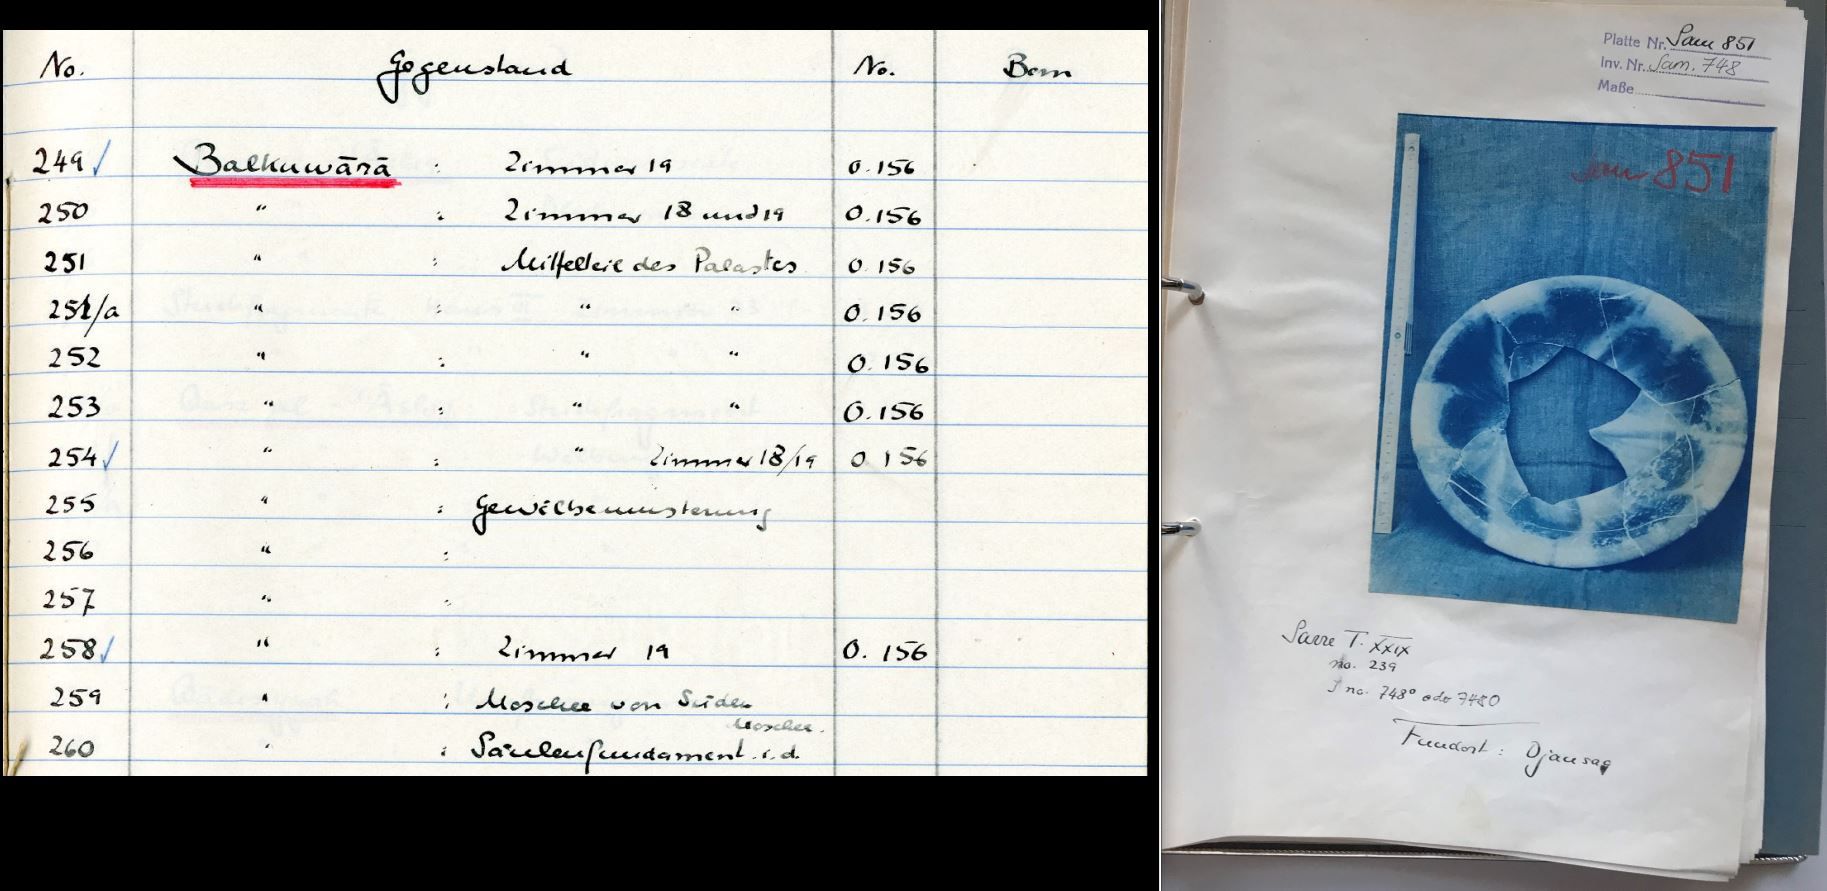 No. Gegenstand No. Bem
249 ✓ Balkuwārā : Zimmer 19 0.156
250 " : Zimmer 18 und 19 0.156
251 " : Mittelteil des Palastes 0.156
251/a " : " " 0.156
252 " : " " 0.156
253 " : " " 0.156
254 ✓ " : " Zimmer 18/19 0.156
255 " : Gewölbemusterung
256 " :
257 " :
258 ✓ " : Zimmer 19 0.156
259 " : Moschee von Süden
Moschee.
260 " : Säulenfundament i.d.
Platte Nr. Sam 851
Inv. Nr. Sam. 748
Maße
Sam 851
Sarre T. XXIX
no. 239
J no. 748° oder 7480
Fundort : Djausaq